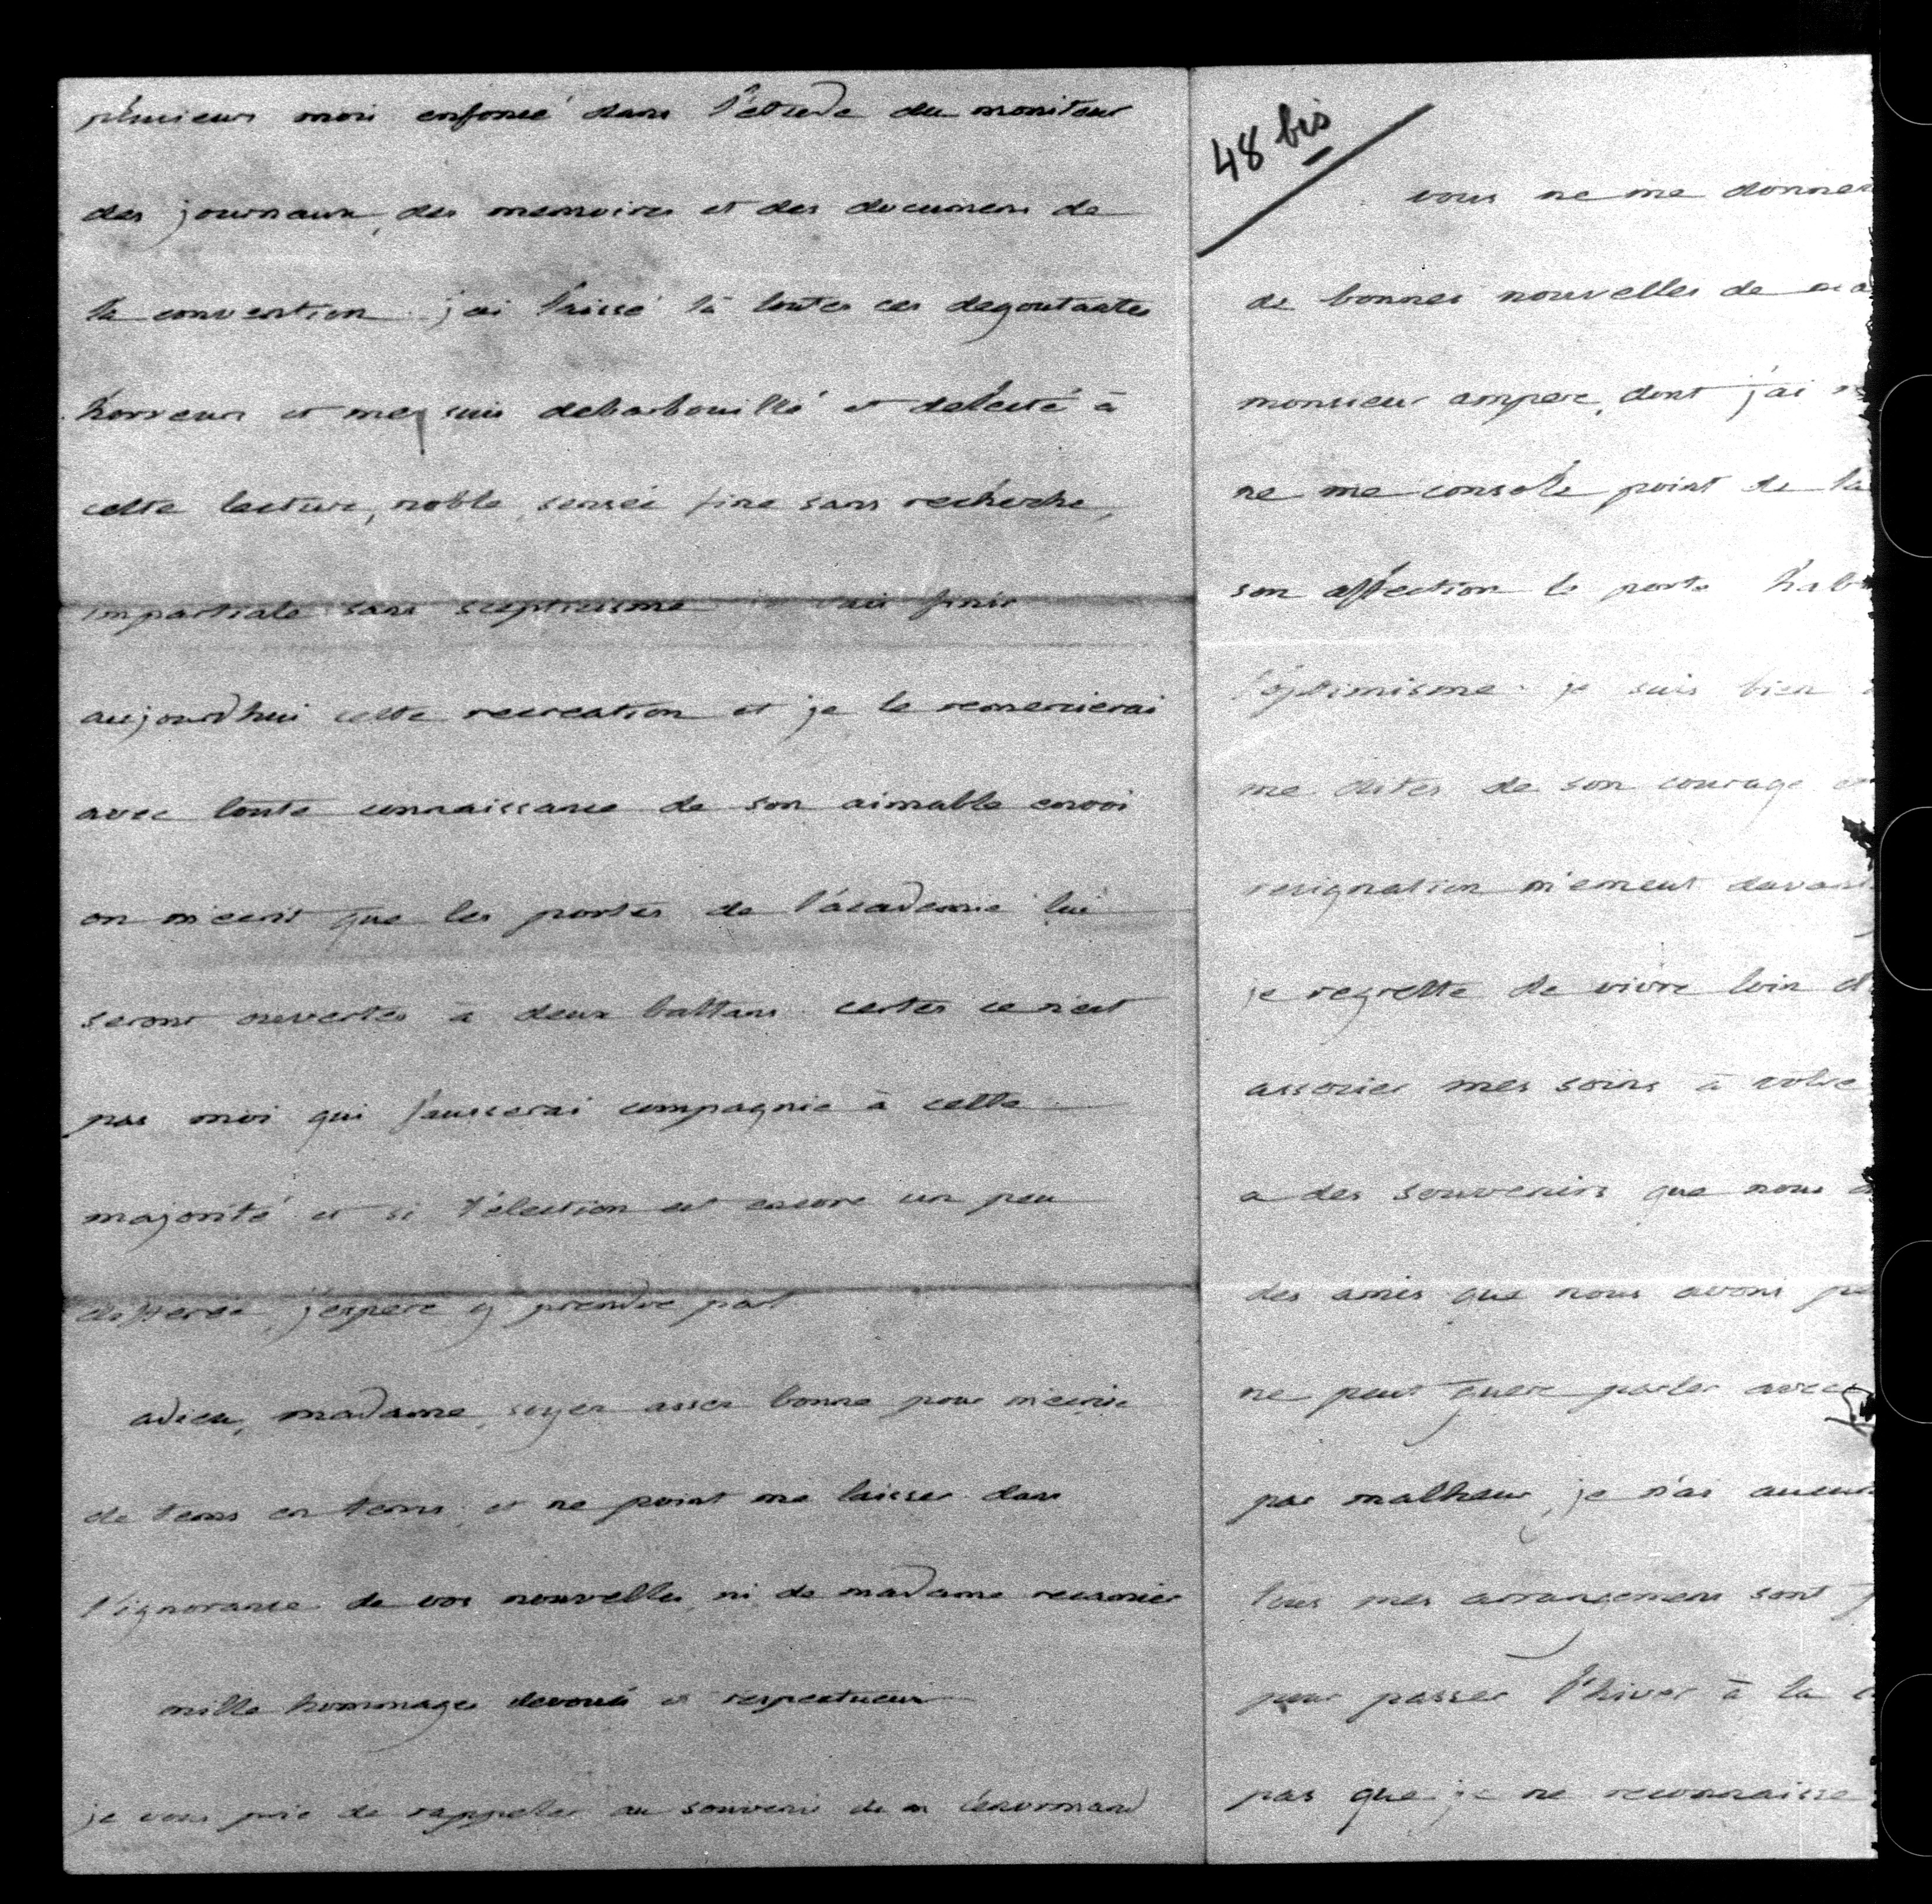 plusieurs mois enfoncé dans l'étude du moniteur
des journaux, des memoires et des documens de
la convention. j'ai laissé là toutes ces degoutantes
horreurs et me suis debarbouillé et delecté à
cette lecture, noble, sensée fine sans recherche,
impartiale sans scepticisme je vais finir
aujourd'hui cette recreation et je le remercierai
avec toute connaissance de son aimable envoi
on m'ecrit que les portes de l'academie lui
seront ouvertes à deux battans. certes ce n'est
pas moi qui fausserai compagnie à cette
majorité et si l'élection est encore un peu
differée, j'espere y prendre part
adieu, madame, soyez assez bonne pour m'ecrire
de tems en tems, et ne point me laisser dans
l'ignorance de vos nouvelles, ni de madame recamier
mille hommages devoués et respectueux
je vous prie de rappeler au souvenir de m lenormand
48 bis
vous ne me donnez
de bonnes nouvelles de
monsieur ampere, dont j'ai
ne me console point de la
son affection le porte
l'optimisme. je suis bien
me dites de son courage
resignation m'emeut
je regrette de vivre loin
associer mes soins à votre
a des souvenirs que nous
des amis que nous avons
ne peut guere parler avec
par malheur, je n'ai
tous mes arrangemens sont
pour passer l'hiver à la
pas que je ne reconnaisse